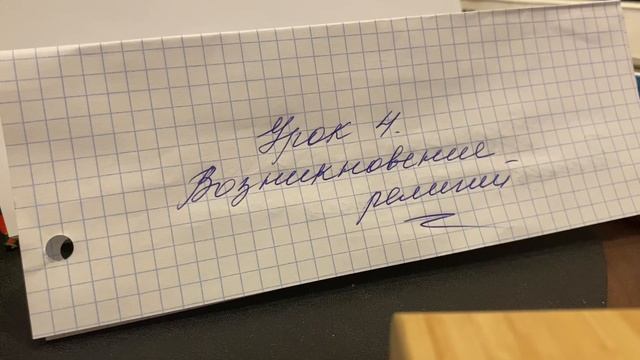 Урок 4.
Возникновение
религий